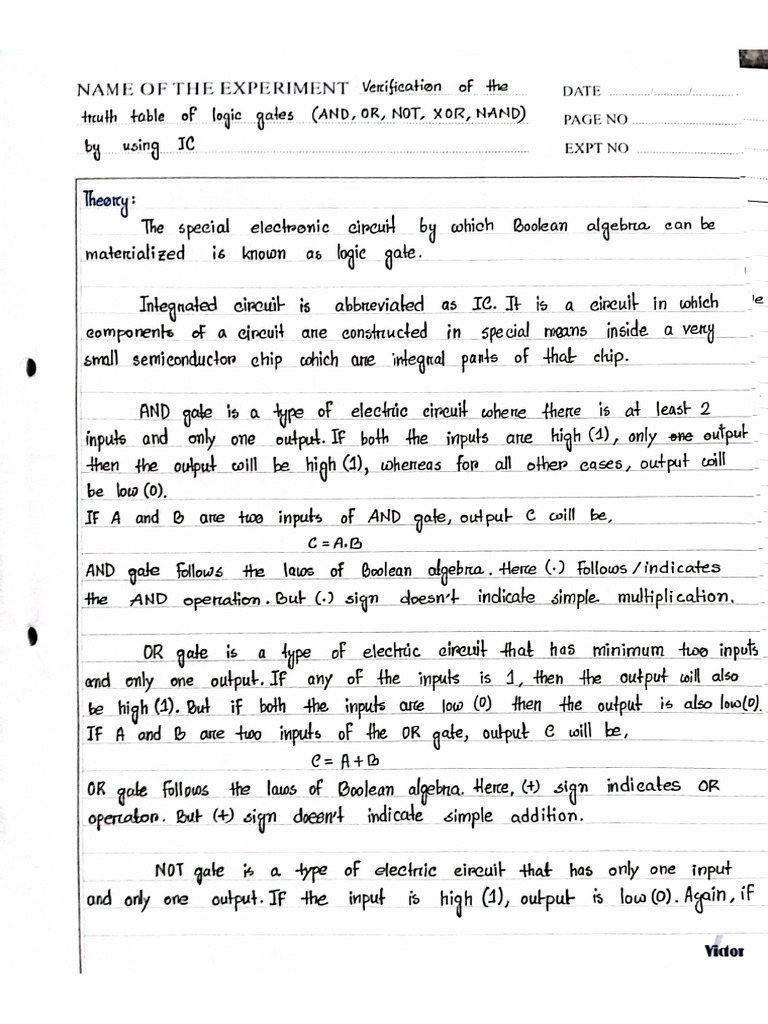 NAME OF THE EXPERIMENT Verification of the
truth table of logic gates (AND, OR, NOT, XOR, NAND)
by using IC
DATE ............/............/............
PAGE NO
EXPT NO
Theory:
The special electronic circuit by which Boolean algebra can be
materialized is known as logic gate.
Integnated circuit is abbreviated as IC. It is a circuit in which
components of a circuit are constructed in special means inside a very
small semiconductor chip which are integral parts of that chip.
AND gate is a type of electric circuit where there is at least 2
inputs and only one output. If both the inputs are high (1), only one output
then the output will be high (1), whereas for all other cases, output will
be low (0).
If A and B are two inputs of AND gate, output C will be,
C = A.B
AND gate follows the laws of Boolean algebra. Here (.) follows/indicates
the AND operation. But (.) sign doesn't indicate simple multiplication.
OR gate is a type of electric circuit that has minimum two inputs
and only one output. If any of the inputs is 1, then the output will also
be high (1). But if both the inputs are low (0) then the output is also low(0).
If A and B are two inputs of the OR gate, output C will be,
C = A + B
OR gate follows the laws of Boolean algebra. Here, (+) sign indicates OR
operator. But (+) sign doesn't indicate simple addition.
NOT gate is a type of electric circuit that has only one input
and only one output. If the input is high (1), output is low (0). Again, if
Victor